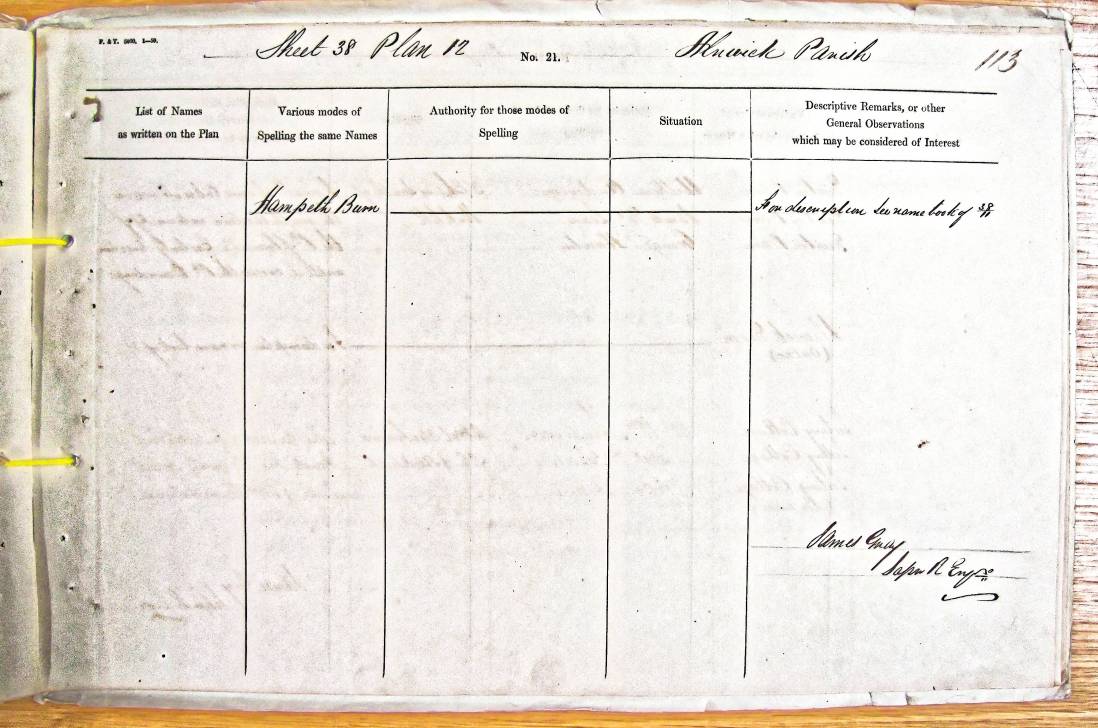 P. & T. 5000. 1—59.
Sheet 38 Plan 12
No. 21.
Alnwick Parish
113
List of Names
as written on the Plan
Various modes of
Spelling the same Names
Authority for those modes of
Spelling
Situation
Descriptive Remarks, or other
General Observations
which may be considered of Interest
Hampeth Burn
For description See name book of 38/11
James Gray
Sapr R Engrs